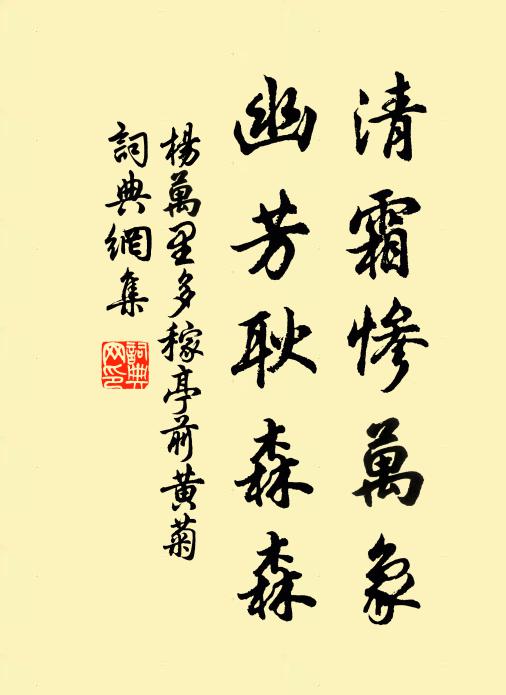 清霜惨萬象
幽芳耿森森
楊萬里多稼亭前黄菊
詞典網集
詞典
网印